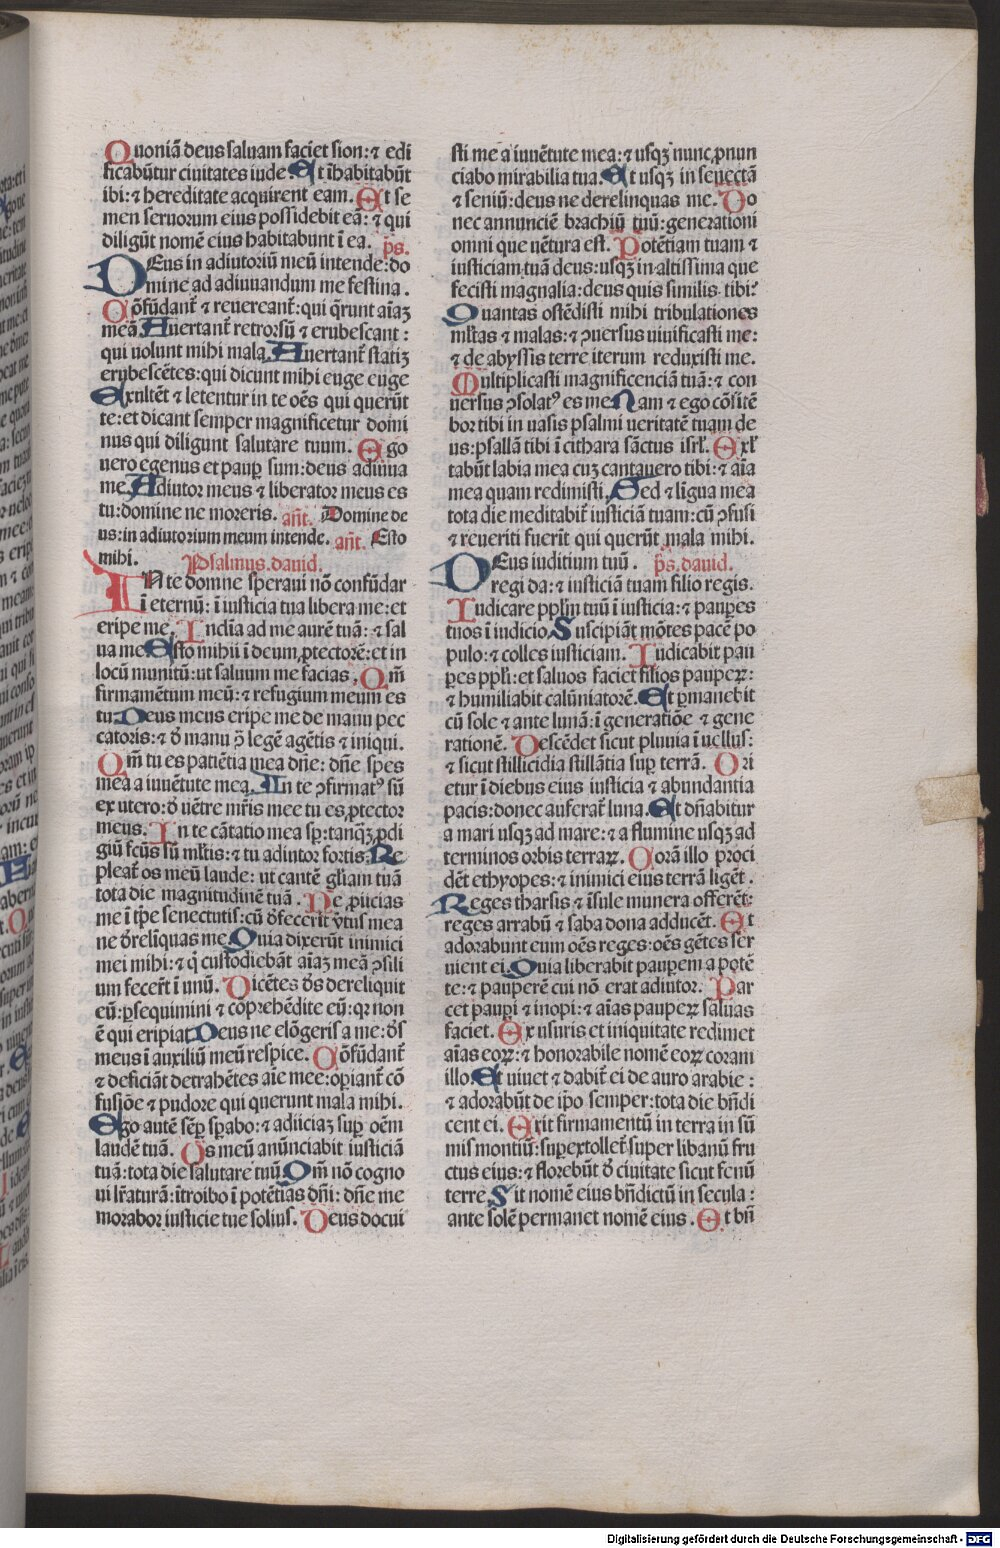 Quoniā deus saluam faciet sion: ⁊ edi
ficabūtur ciuitates iude Et īhabitabūt
ibi: ⁊ hereditate acquirent eam. Et se
men seruorum eius possidebit eā: ⁊ qui
diligūt nomē eius habitabunt ī ea. ps.
DEus in adiutoriū meū intende: do
mine ad adiuuandum me festina.
Cōfūdant᷑ ⁊ reuereant᷑: qui q̄runt aīaꝫ
meā Auertant᷑ retrorsū ⁊ erubescant:
qui uolunt mihi mala. Auertant᷑ statiꝫ
erubescētes: qui dicunt mihi euge euge
Exultēt ⁊ letentur in te oēs qui querūt
te: et dicant semper magnificetur domi
nus qui diligunt salutare tuum. Ego
uero egenus et paup̱ sum: deus adiuua
me. Adiutor meus ⁊ liberator meus es
tu: domine ne moreris. añt. Domine de
us: in adiutorium meum intende. añt. Esto
mihi. Psalmus. dauid.
IN te domne speraui nō confūdar
ī eternū: ī iusticia tua libera me: et
eripe me. Inclīa ad me aurē tuā: ⁊ sal
ua me Esto mihii ī deum ꝓtectorē: et in
locū munitū: ut saluum me facias. Qm̄
firmamētum meū: ⁊ refugium meum es
tu. Deus meus eripe me de manu pec
catoris: ⁊ d̄ manu ꝯ̄ legē agētis ⁊ iniqui.
Qm̄ tu es patiētia mea dn̄e: dn̄e spes
mea a iuuētute mea. In te ꝯfirmatꝰ sū
ex utero: d̄ uētre mr̄is mee tu es ꝓtector
meus. In te cātatio mea sp̱: tanq̄ꝫ ꝓdi
giū fcūs sū ml̄tis: ⁊ tu adiutor fortis. Re
pleat᷑ os meū laude: ut cantē gl̄iam tuā
tota die magnitudinē tuā. Ne ꝓiicias
me ī tp̄e senectutis: cū d̄fecerit v̄tus mea
ne d̄relīquas me. Quia dixerūt inimici
mei mihi: ⁊ q̄ custodiebāt aīaꝫ meā ꝯsili
um fecer̄t ī unū. Dicētes d̄s dereliquit
eū: ꝑsequimini ⁊ cōprehēdite eū: qꝛ non
ē qui eripiat Deus ne elōgeris a me: d̄s
meus ī auxiliū meū respice. Cōfūdant᷑
⁊ deficiāt detrahētes aīe mee: oꝑiant᷑ cō
fusiōe ⁊ pudore qui querunt mala mihi.
Ego autē sēꝑ sꝑabo: ⁊ adiiciaꝫ suꝑ oēm
laudē tuā. Os meū anūnciabit iusticiā
tuā: tota die salutare tuū Qm̄ nō cogno
ui lr̄aturā: ītroibo ī potētias dn̄i: dn̄e me
morabor iusticie tue solius. Deus docui
sti me a iuuētute mea: ⁊ usqꝫ nunc ꝓnun
ciabo mirabilia tua. Et usqꝫ in senectā
⁊ seniū: deus ne derelinquas me. Do
nec annunciē brachiū tuū: generationi
omni que uētura est. Potētiam tuam ⁊
iusticiam tuā deus: usqꝫ in altissima que
fecisti magnalia: deus quis similis tibi?
Quantas ostēdisti mihi tribulationes
ml̄tas ⁊ malas: ⁊ ꝯuersus uiuificasti me:
⁊ de abyssis terre iterum reduxisti me.
Multiplicasti magnificenciā tuā: ⁊ con
uersus ꝯsolatꝰ es me Nam ⁊ ego cōfitē
bor tibi in uasis psalmi ueritatē tuam de
us: psallā tibi ī cithara sāctus isrl̄. Exl̄
tabūt labia mea cuꝫ cantauero tibi: ⁊ aīa
mea quam redimisti. Sed ⁊ līgua mea
tota die meditabit᷑ iusticiam tuam: cū ꝯfusi
⁊ reueriti fuerīt qui querūt mala mihi.
DEus iuditium tuū. ps. dauid.
regi da: ⁊ iusticiā tuam filio regis.
Iudicare pplm̄ tuū ī iusticia: ⁊ pauꝑes
tuos ī iudicio Suscipiāt mōtes pacē po
pulo: ⁊ colles iusticiam. Iudicabit pau
ꝑes ppl̄i: et saluos faciet filios paupeꝝ:
⁊ humiliabit calūniatorē. Et ꝑmanebit
cū sole ⁊ ante lunā: ī generatiōe ⁊ gene
rationē. Descēdet sicut pluuia ī uellus:
⁊ sicut stillicidia stillātia suꝑ terrā. Ori
etur ī diebus eius iusticia ⁊ abundantia
pacis: donec auferat᷑ luna. Et dn̄abitur
a mari usqꝫ ad mare: ⁊ a flumine usqꝫ ad
terminos orbis terraꝝ. Corā illo proci
dēt ethyopes: ⁊ inimici eius terrā līgēt.
Reges tharsis ⁊ īsule munera offerēt:
reges arrabū ⁊ saba dona adducēt. Et
adorabunt eum oēs reges: oēs gētes ser
uient ei. Quia liberabit pauꝑem a potē
te: ⁊ pauperē cui nō erat adiutor. Par
cet pauꝑi ⁊ inopi: ⁊ aīas paupeꝝ saluas
faciet. Ex usuris et iniquitate redimet
aīas eoꝝ: ⁊ honorabile nomē eoꝝ coram
illo. Et uiuet ⁊ dabit᷑ ei de auro arabie:
⁊ adorabūt de ip̄o semper: tota die bn̄di
cent ei. Erit firmamentū in terra in sū
mis montiū: suꝑextollet᷑ super libanū fru
ctus eius: ⁊ florebūt d̄ ciuitate sicut fenū
terre. Sit nomē eius bn̄dictū in secula:
ante solē permanet nomē eius. Et bn̄
Digitalisierung gefördert durch die Deutsche Forschungsgemeinschaft - DFG